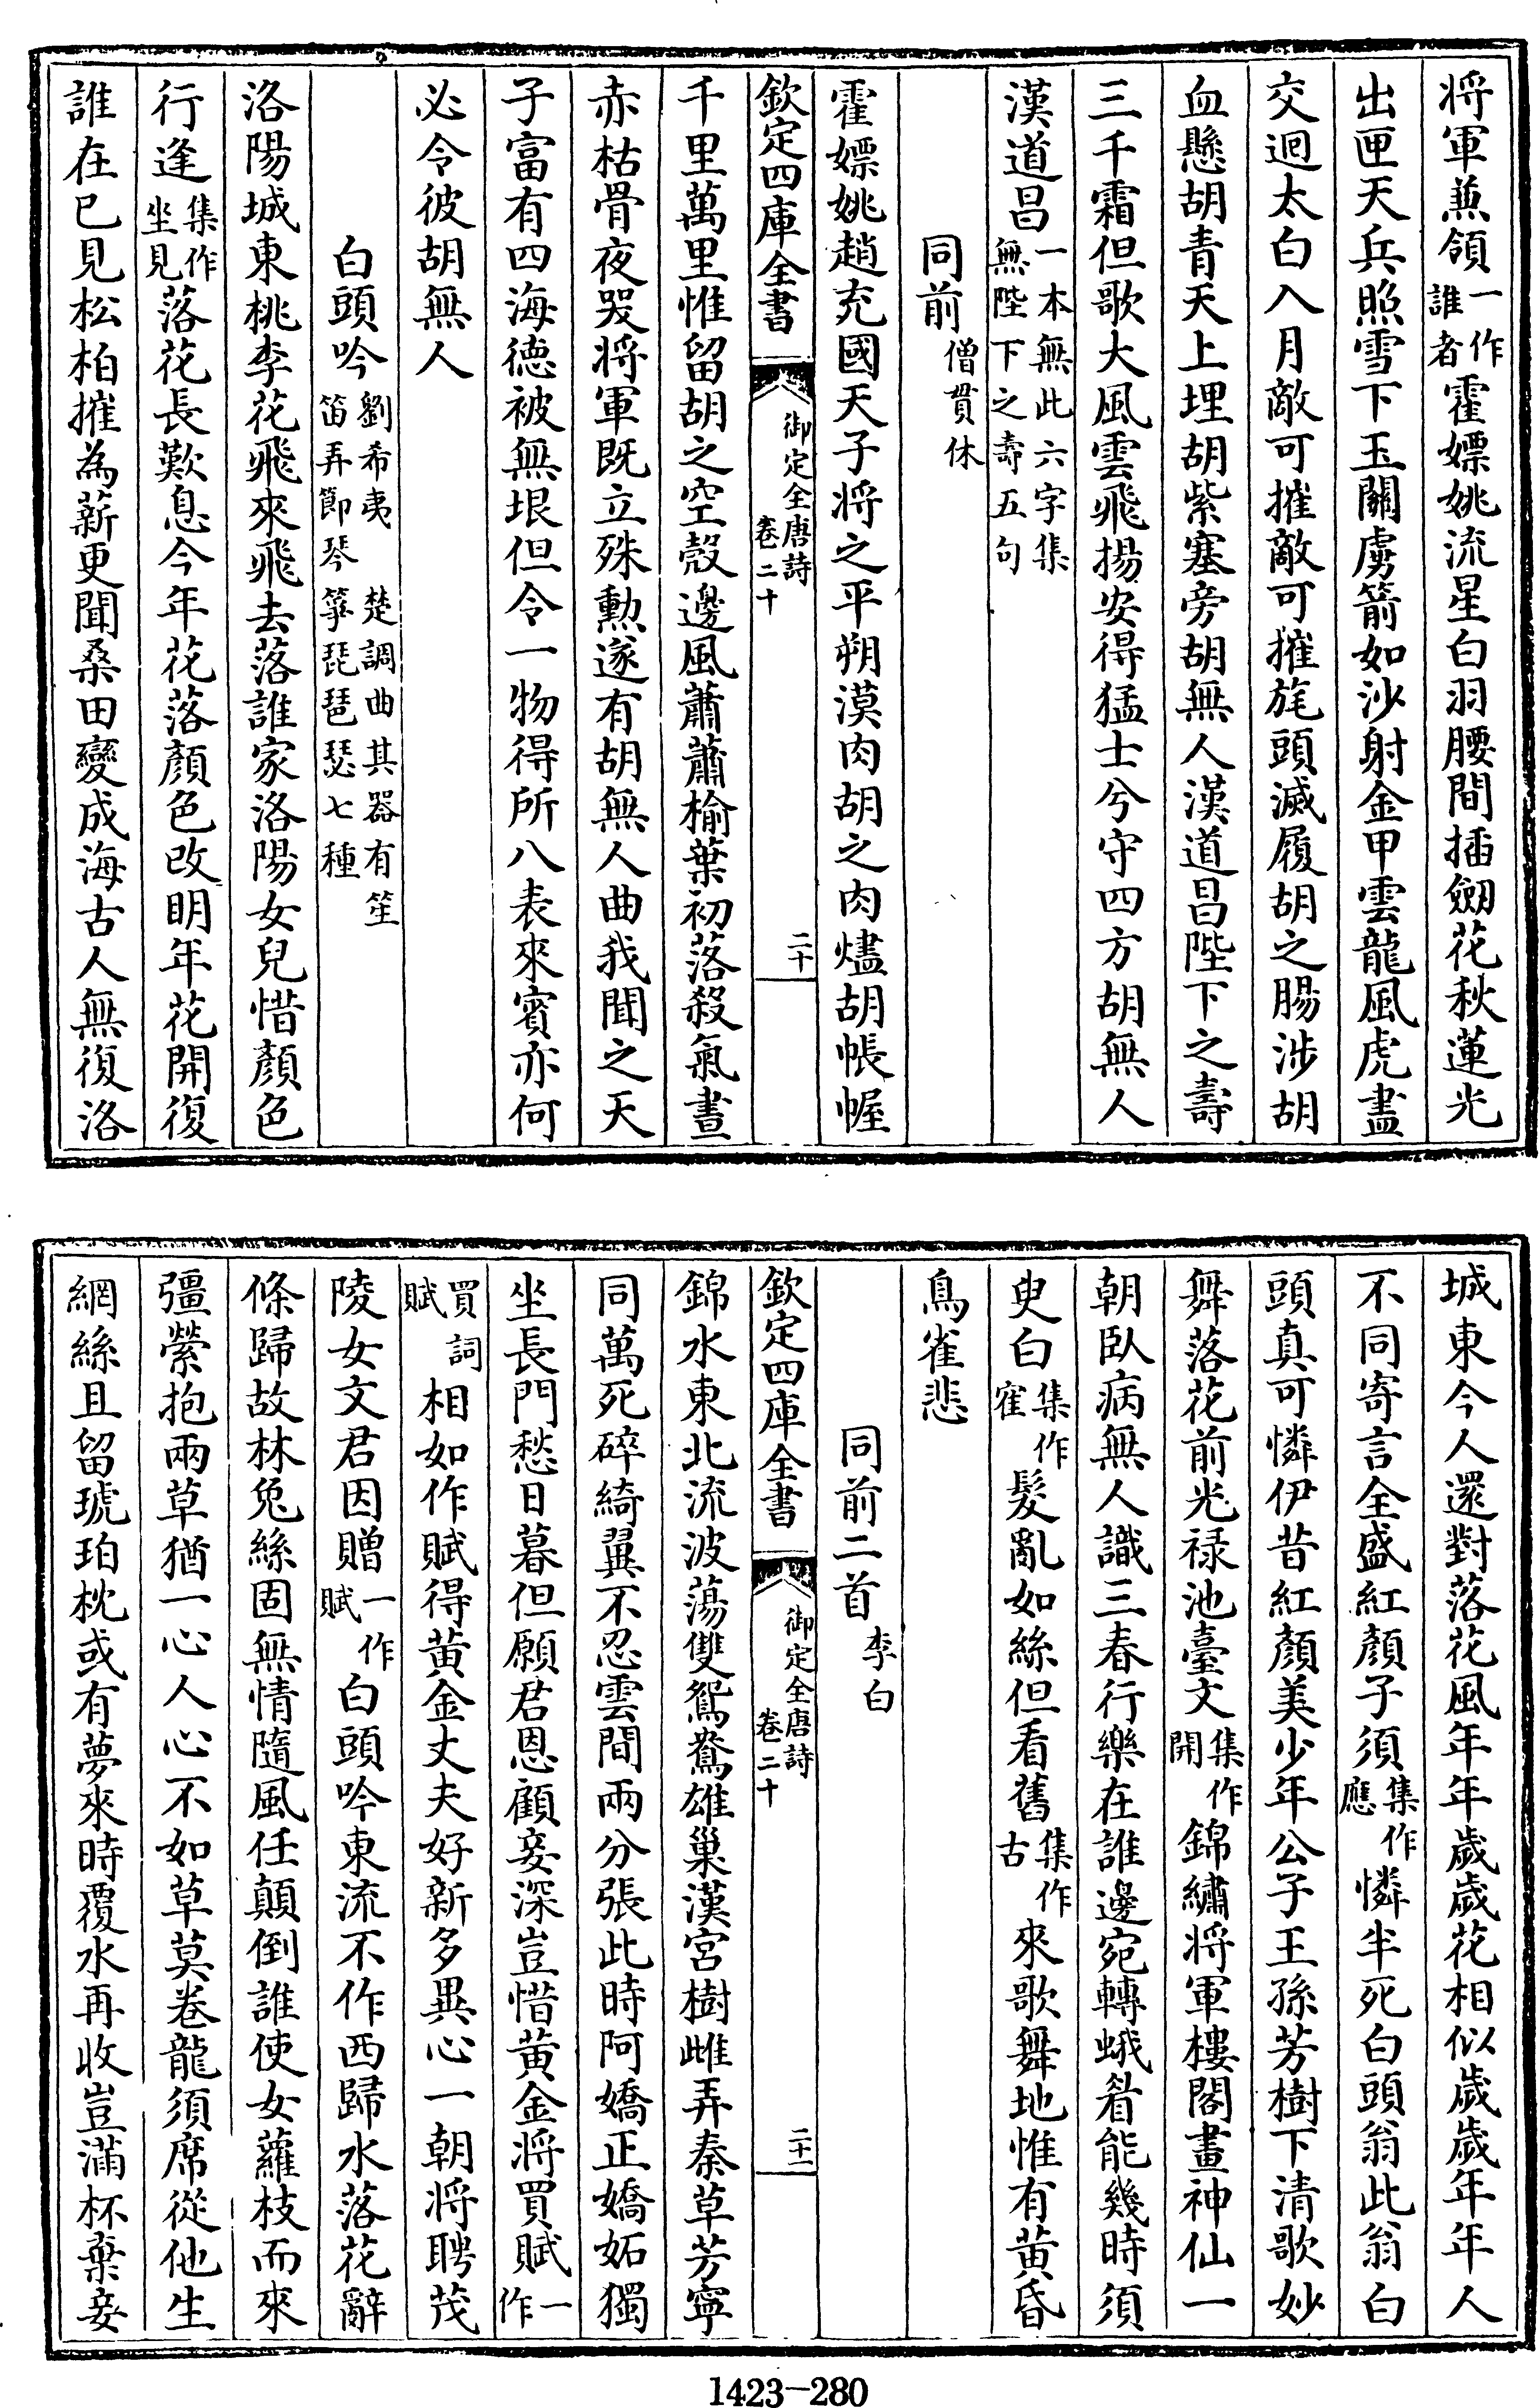 將軍兼領一作誰者霍嫖姚流星白羽腰間插劒花秋蓮光
出匣天兵照雪下玉關虜箭如沙射金甲雲龍風虎盡
交迴太白入月敵可摧敵可摧旄頭滅履胡之腸涉胡
血懸胡青天上埋胡紫塞旁胡無人漢道昌陛下之壽
三千霜但歌大風雲飛揚安得猛士兮守四方胡無人
漢道昌一本無此六字集無陛下之壽五句
同前僧貫休
霍嫖姚趙充國天子將之平朔漠肉胡之肉燼胡帳幄
欽定四庫全書 御定全唐詩卷二十 二十
千里萬里惟留胡之空殼邊風蕭蕭榆葉初落殺氣晝
赤枯骨夜哭將軍既立殊勲遂有胡無人曲我聞之天
子富有四海德被無垠但令一物得所八表來賓亦何
必令彼胡無人
白頭吟劉希夷 楚調曲其器有笙笛弄節琴箏琵琶瑟七種
洛陽城東桃李花飛來飛去落誰家洛陽女兒惜顏色
行逢集作坐見落花長歎息今年花落顏色改明年花開復
誰在已見松柏摧為薪更聞桑田變成海古人無復洛
城東今人還對落花風年年歲歲花相似歲歲年年人
不同寄言全盛紅顏子須集作應憐半死白頭翁此翁白
頭真可憐伊昔紅顏美少年公子王孫芳樹下清歌妙
舞落花前光禄池臺文集作開錦繡將軍樓閣畫神仙一
朝臥病無人識三春行樂在誰邊宛轉蛾眉能幾時須
臾白集作鶴髮亂如絲但看舊集作古來歌舞地惟有黃昏
鳥雀悲
同前二首李白
欽定四庫全書 御定全唐詩卷二十 二十一
錦水東北流波蕩雙鴛鴦雄巢漢宮樹雌弄秦草芳寧
同萬死碎綺翼不忍雲間兩分張此時阿嬌正嬌妬獨
坐長門愁日暮但願君恩顧妾深豈惜黃金將買賦一作
買詞賦相如作賦得黃金丈夫好新多異心一朝將聘茂
陵女文君因贈一作賦白頭吟東流不作西歸水落花辭
條歸故林兔絲固無情隨風任顛倒誰使女蘿枝而來
彊縈抱兩草猶一心人心不如草莫卷龍須席從他生
網絲且留琥珀枕或有夢來時覆水再收豈滿杯棄妾
1423—280